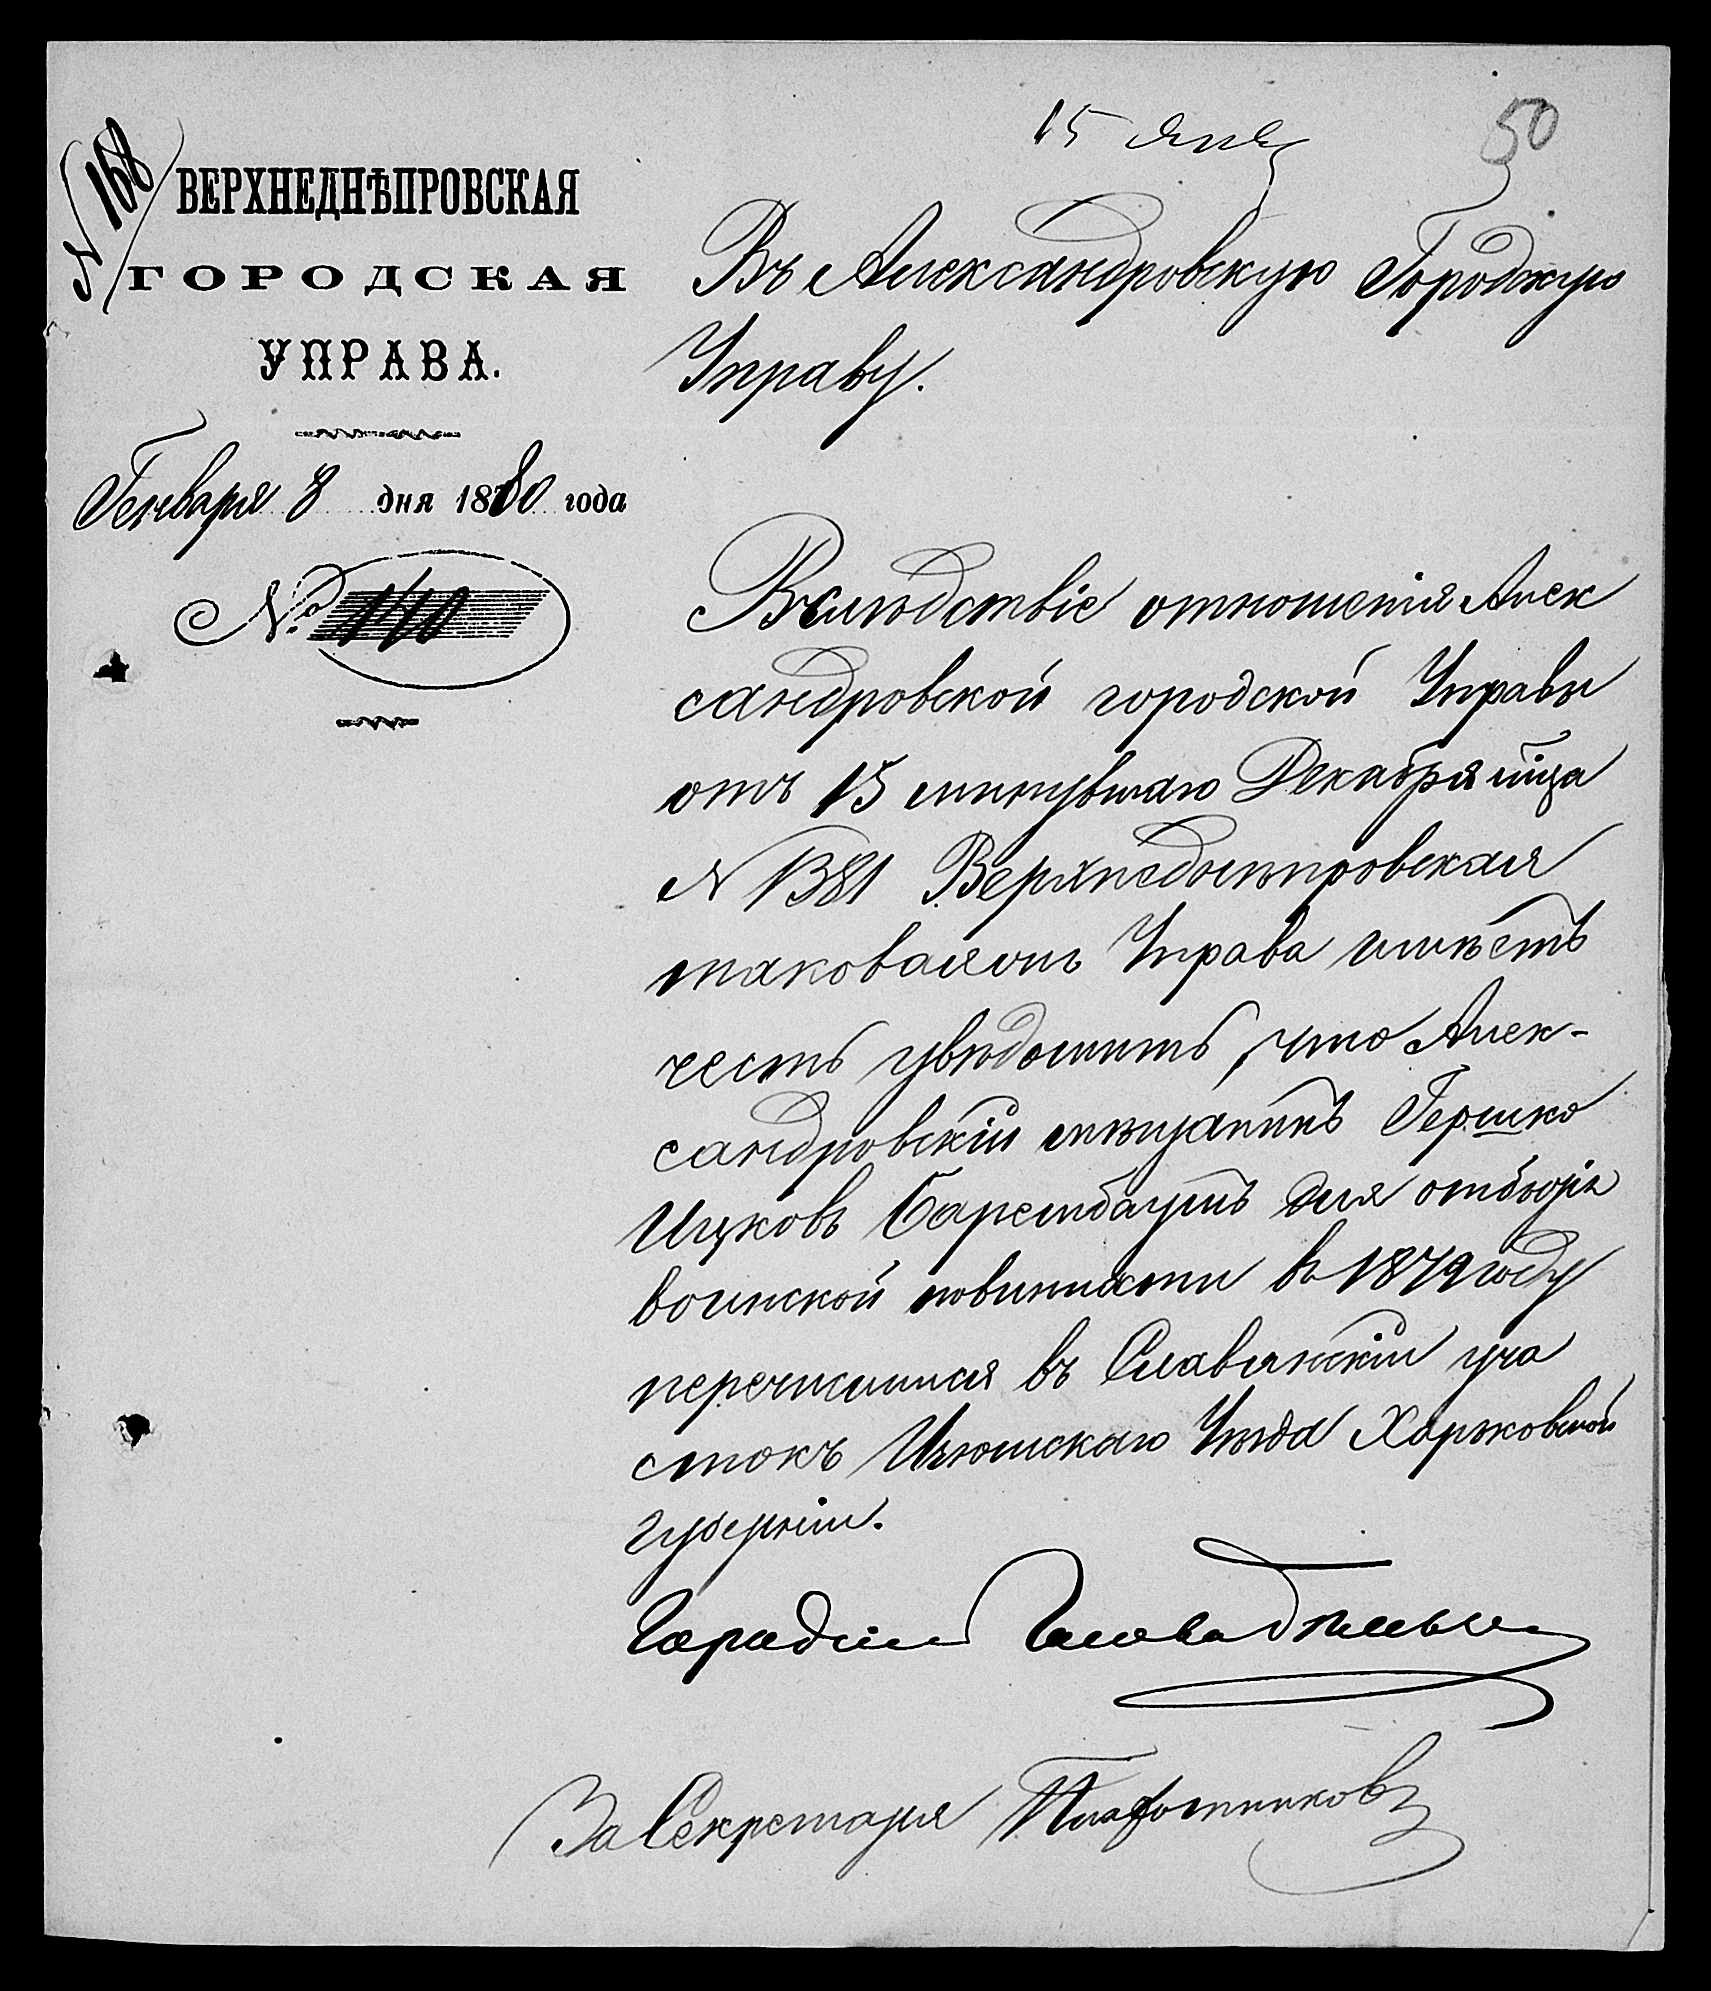 15 янв
50
№ 168
ВЕРХНЕДНѢПРОВСКАЯ
ГОРОДСКАЯ
УПРАВА.
Генваря 8 дня 1880 года
№ 140
Въ Александровскую Городскую
Управу.
Вслѣдствіе отношенія Алек
сандровской городской Управы
отъ 15 минувшаго Декабря м͠ца
№ 1381 Верхнеднѣпровская
таковаяжъ Управа имѣетъ
честь увѣдомить, что Алек-
сандровскій мѣщанинъ Гершко
Ицковъ для отбытія
воинской повинности въ 1879 году
перечислился въ Славянскій уча
стокъ Изюмскаго Уѣзда Харьковской
губерніи.
Городской Голова
За Секретаря